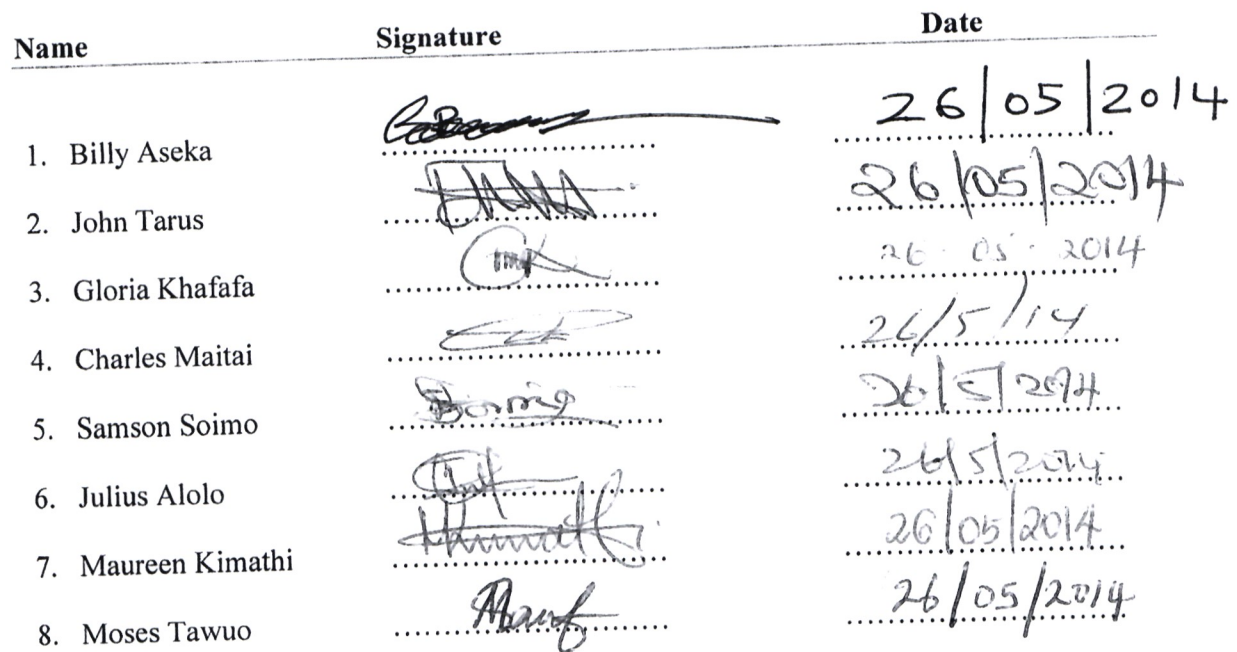 Name Signature Date
26/05/2014
1. Billy Aseka
26/05/2014
2. John Tarus
26 . 05 . 2014
3. Gloria Khafafa
26/5/14
4. Charles Maitai
26/5/2014
5. Samson Soimo
26/5/2014
6. Julius Alolo
26/05/2014
7. Maureen Kimathi
26/05/2014
8. Moses Tawuo